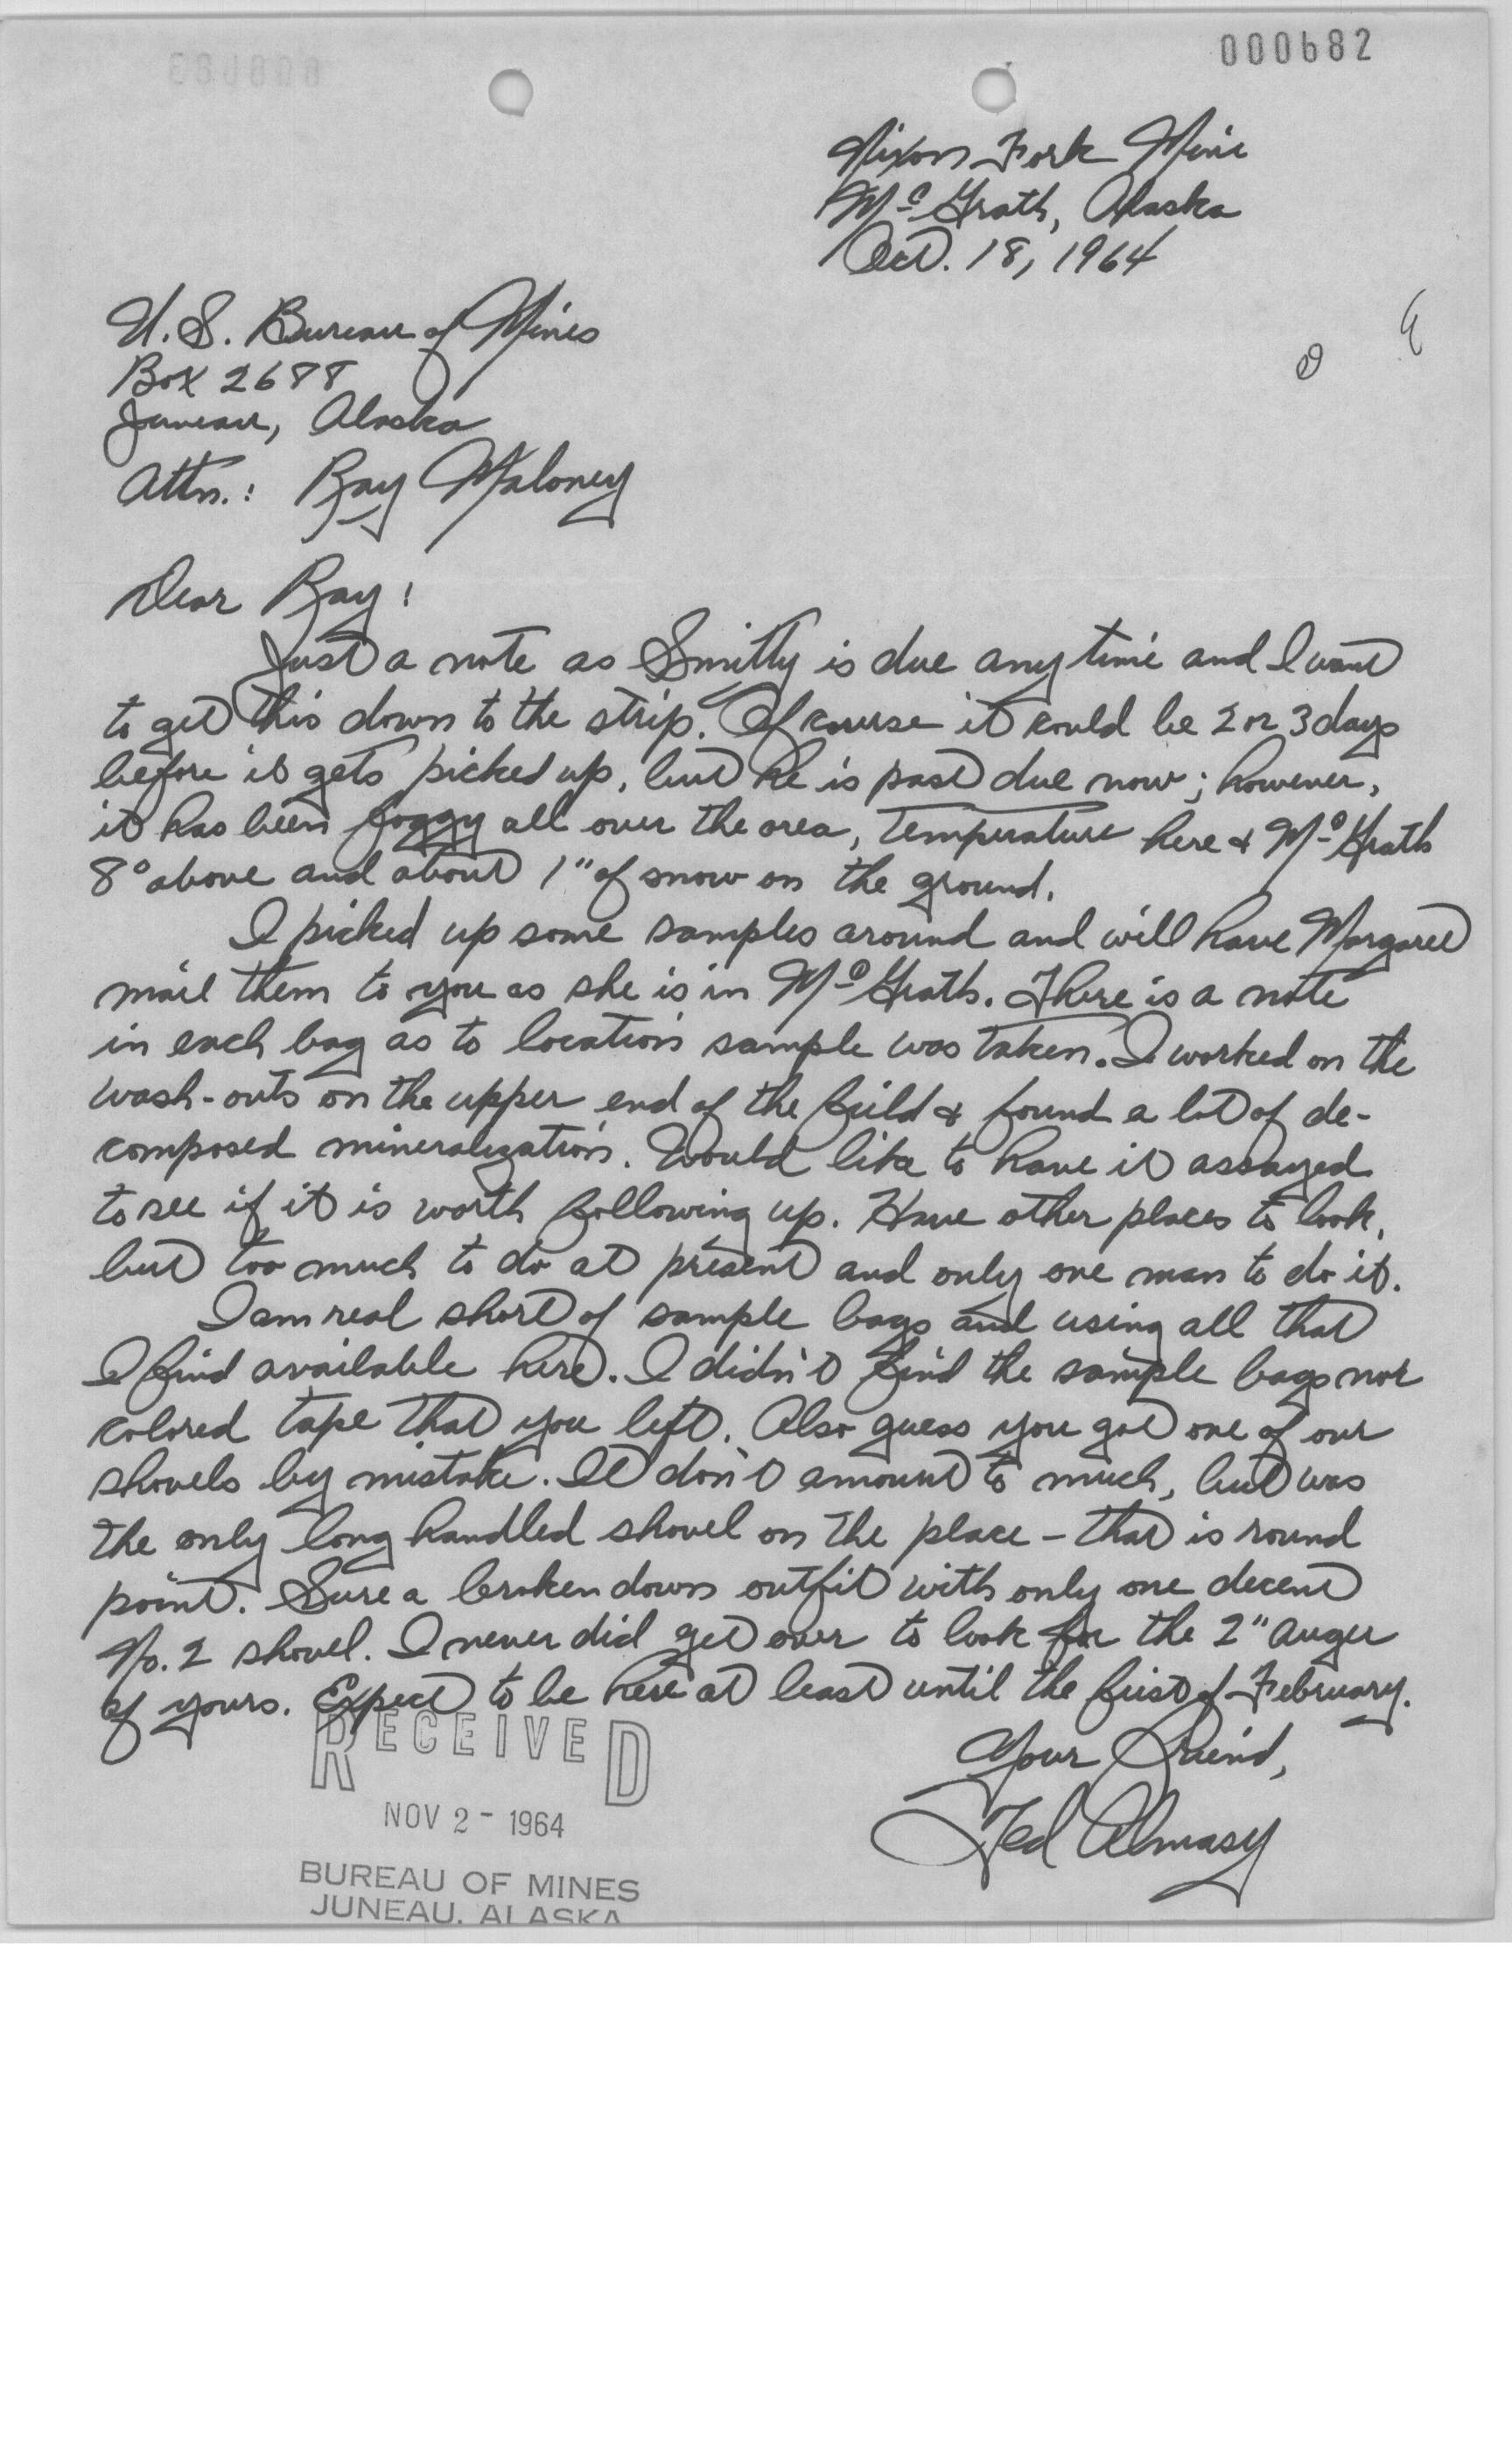 000682
Nixon Fork Mine
McGrath, Alaska
Oct. 18, 1964
U.S. Bureau of Mines
Box 2688
Juneau, Alaska
Attn.: Ray Maloney
Dear Ray:
Just a note as Smitty is due any time and I want
to get this down to the strip. Of course it could be 2 or 3 days
before it gets picked up, but he is past due now; however,
it has been foggy all over the area, temperature here & McGrath
8° above and about 1" of snow on the ground.
I picked up some samples around and will have Margaret
mail them to you as she is in McGrath. There is a note
in each bag as to location sample was taken. I worked on the
wash-outs on the upper end of the field & found a lot of de-
composed mineralization. Would like to have it assayed
to see if it is worth following up. Have other places to look,
but too much to do at present and only one man to do it.
I am real short of sample bags and using all that
I find available here. I didn't find the sample bags nor
colored tape that you left. Also guess you got one of our
shovels by mistake. It don't amount to much, but was
the only long handled shovel on the place - that is round
point. Sure a broken down outfit with only one decent
No. 2 shovel. I never did get over to look for the 2" auger
of yours. Expect to be here at least until the first of February.
Your Friend,
Ted Almasy
RECEIVED
NOV 2 - 1964
BUREAU OF MINES
JUNEAU, ALASKA